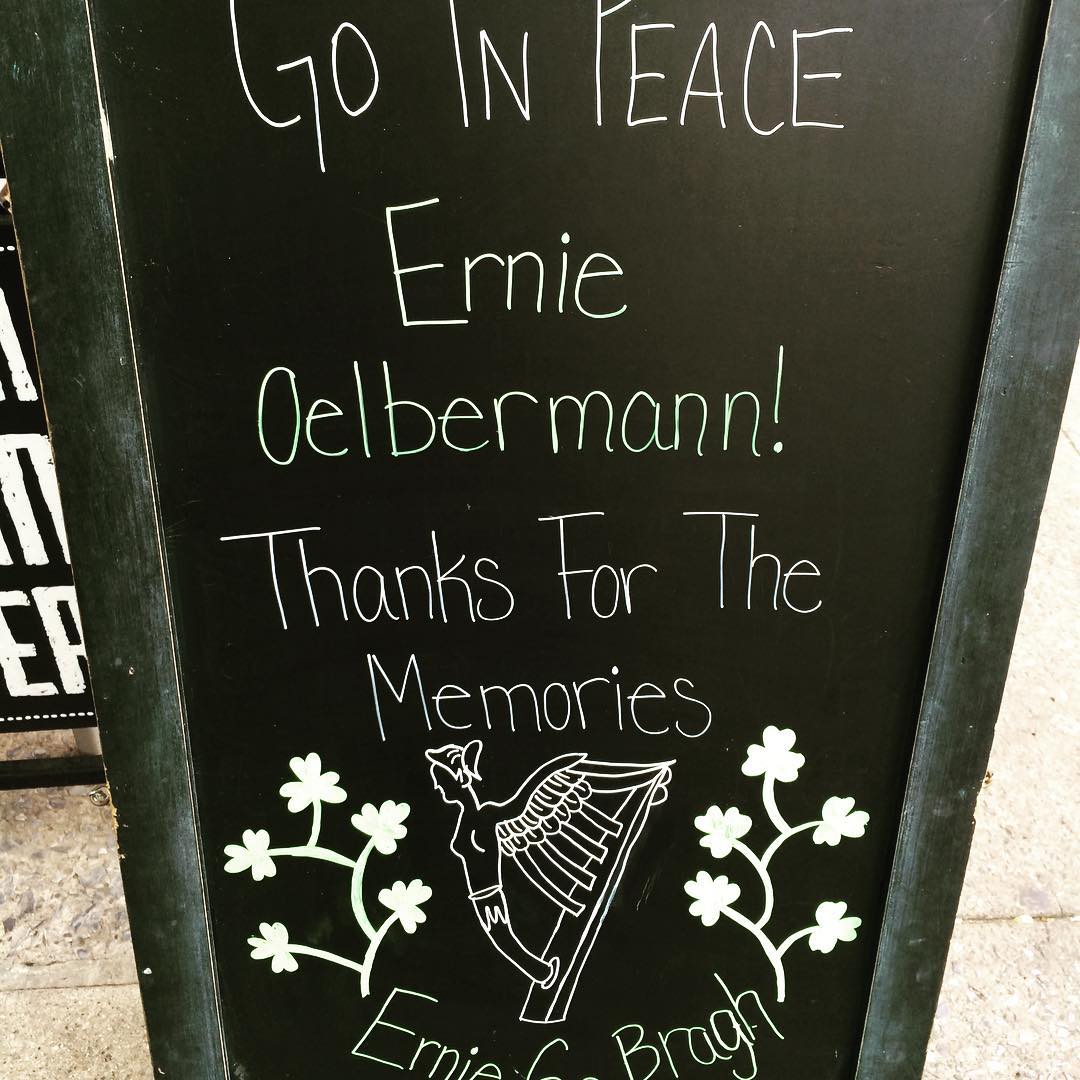 GO IN PEACE
Ernie
Oelbermann!
Thanks For The
Memories
Ernie Go Bragh
ER